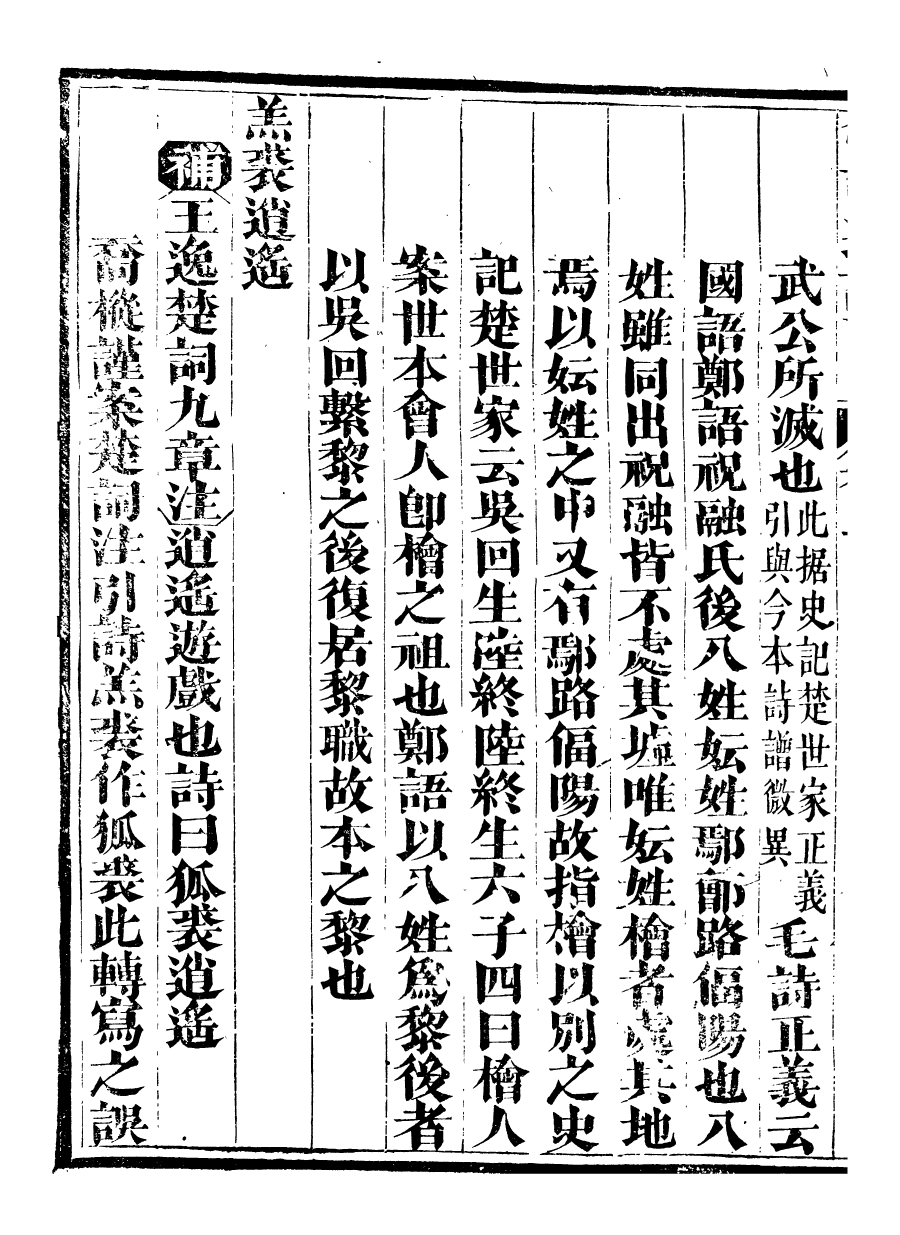 武公所滅也此据史記楚世家正義引與今本詩譜微異毛詩正義云
國語鄭語祝融氏後八姓妘姓鄢鄶路偪陽也八
姓雖同出祝融皆不處其墟唯妘姓檜者處其地
焉以妘姓之中又有鄢路偪陽故指檜以別之史
記楚世家云吳回生陸終陸終生六子四曰檜人
案世本會人卽檜之祖也鄭語以八姓爲黎後者
以吳回繫黎之後復居黎職故本之黎也
羔裘逍遙
補王逸楚詞九章注逍遙遊戲也詩曰狐裘逍遙
喬樅謹案楚詞注引詩羔裘作狐裘此轉寫之誤